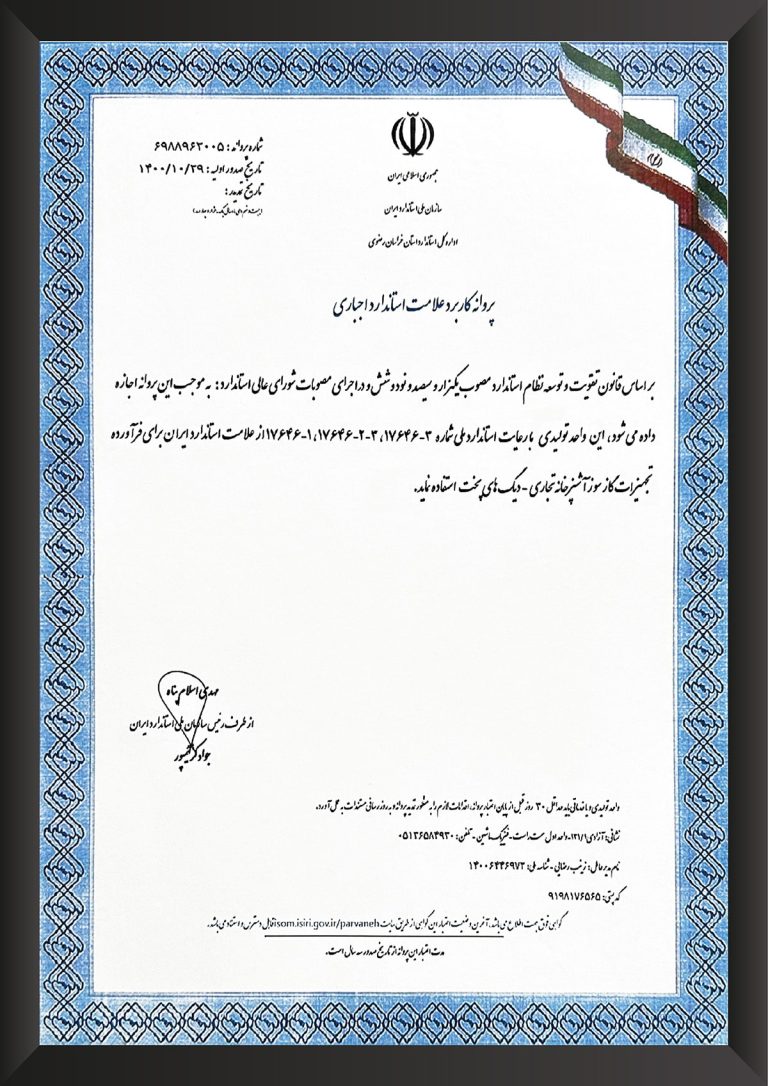 جمهوری اسلامی ایران
سازمان ملی استاندارد ایران
اداره کل استاندارد استان خراسان رضوی
شماره پروانه: ۶۹۸۸۹۶۳۰۰۵
تاریخ صدور اولیه: ۱۴۰۰/۱۰/۲۹
تاریخ تمدید:
پروانه کاربرد علامت استاندارد اجباری
بر اساس قانون تقویت و توسعه نظام استاندارد مصوب یکهزار و سیصد و نود و شش و در اجرای مصوبات شورای عالی استاندارد: به موجب این پروانه اجازه
داده می شود، این واحد تولیدی با رعایت استاندارد ملی شماره ۳-۱۷۶۴۶، ۳-۲-۱۷۶۴۶، ۱-۱۷۶۴۶ از علامت استاندارد ایران برای فرآورده
تجهیزات گاز سوز آشپزخانه تجاری - دیگ های پخت استفاده نماید.
مهدی اسلام پناه
از طرف رئیس سازمان ملی استاندارد ایران
جواد
واحد تولیدی و یا خدماتی باید حداقل ۳۰ روز قبل از پایان اعتبار پروانه، اقدامات لازم را به منظور تمدید پروانه و به روز رسانی مستندات به عمل آورد.
نشانی: آزادی ۱۳۱/۱-واحد اول سمت راست- - تلفن: ۰۵۱۳۶۵۸۴۹۳۰
نام مدیر عامل: زینب رضائی - شناسه ملی: ۱۴۰۰۶۴۴۶۹۷۳
کد پستی: ۹۱۹۸۱۷۶۵۶۵
گواهی فوق جهت اطلاع می باشد. آخرین وضعیت اعتبار این گواهی از طریق سایت isom.isiri.gov.ir/parvaneh قابل دسترس و استناد می باشد.
مدت اعتبار این پروانه از تاریخ صدور سه سال است.